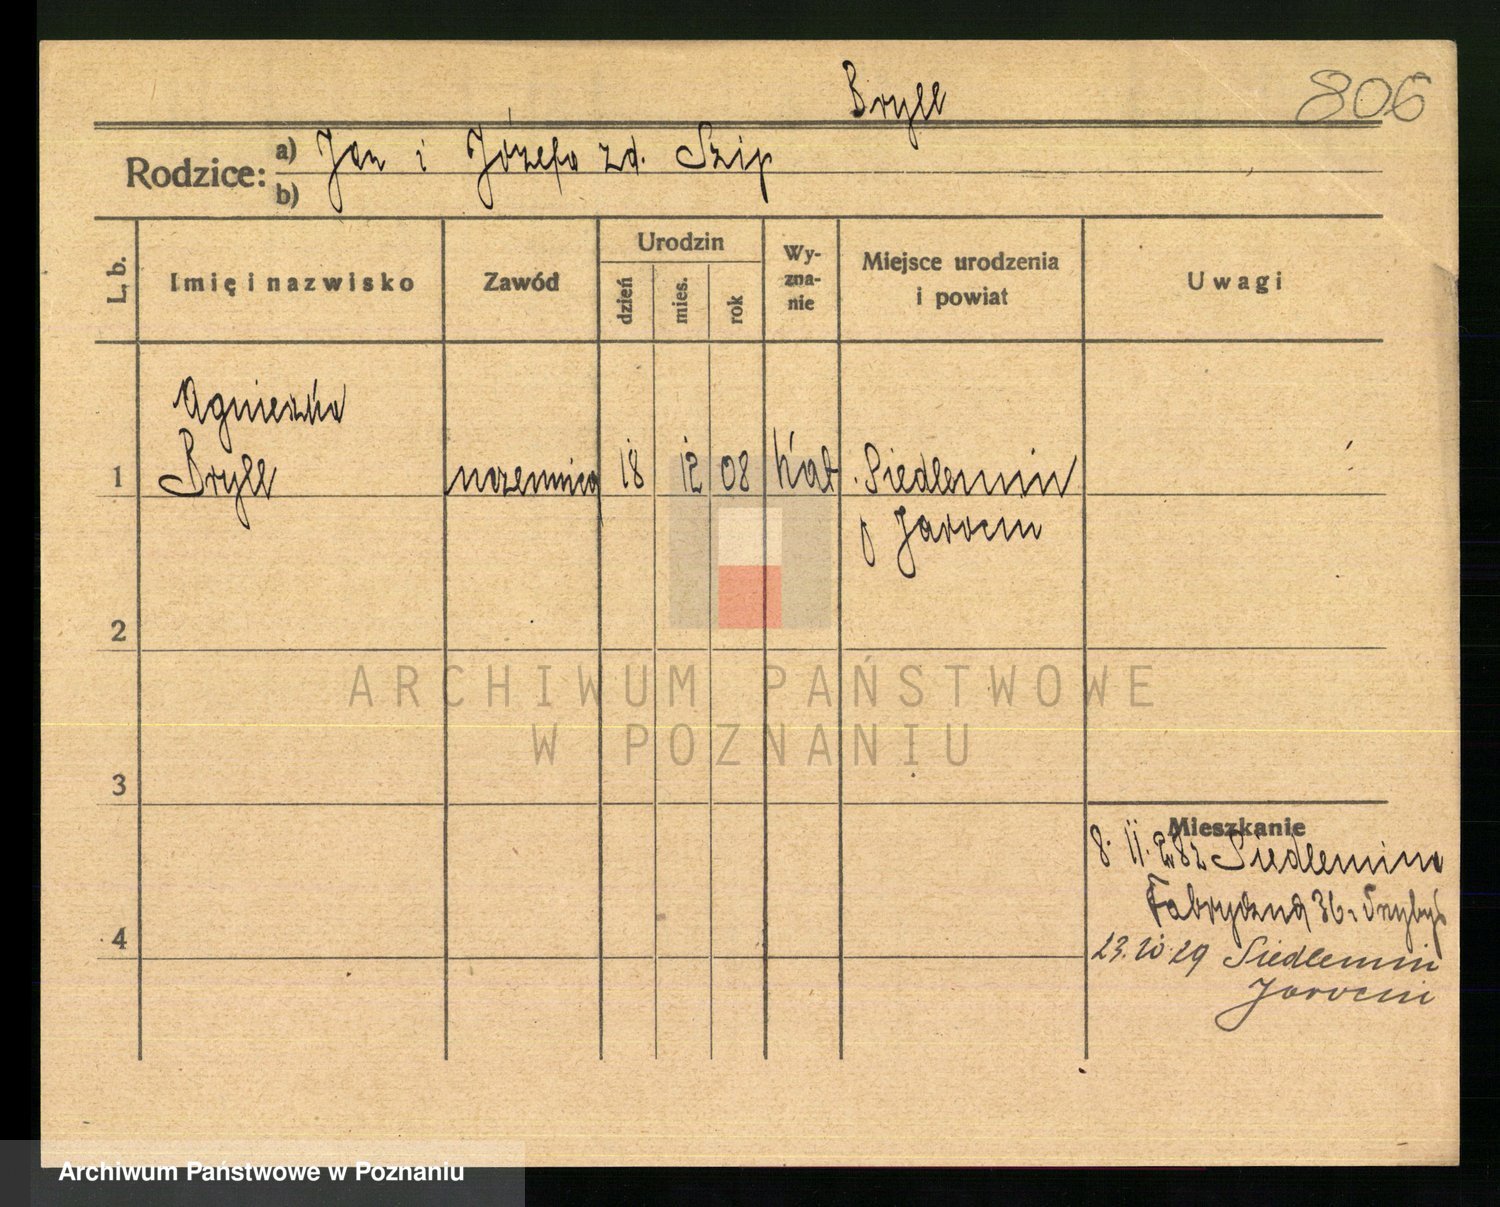 Bryll
806
Rodzice: a) Jan i Józefa zd. Szip
b)
L. b. Imię i nazwisko Zawód Urodzin dzień mies. rok Wy-zna-nie Miejsce urodzenia i powiat Uwagi
Agnieszka
1 Bryll uczennica 18 12 08 kat Siedlemin
p Jarocin
2
ARCHIWUM PAŃSTWOWE
W POZNANIU
3
Mieszkanie
8. 11. 28 z Siedlemina
4 Fabryczna 36
23. 10. 29 Siedlemin
Jarocin
Archiwum Państwowe w Poznaniu